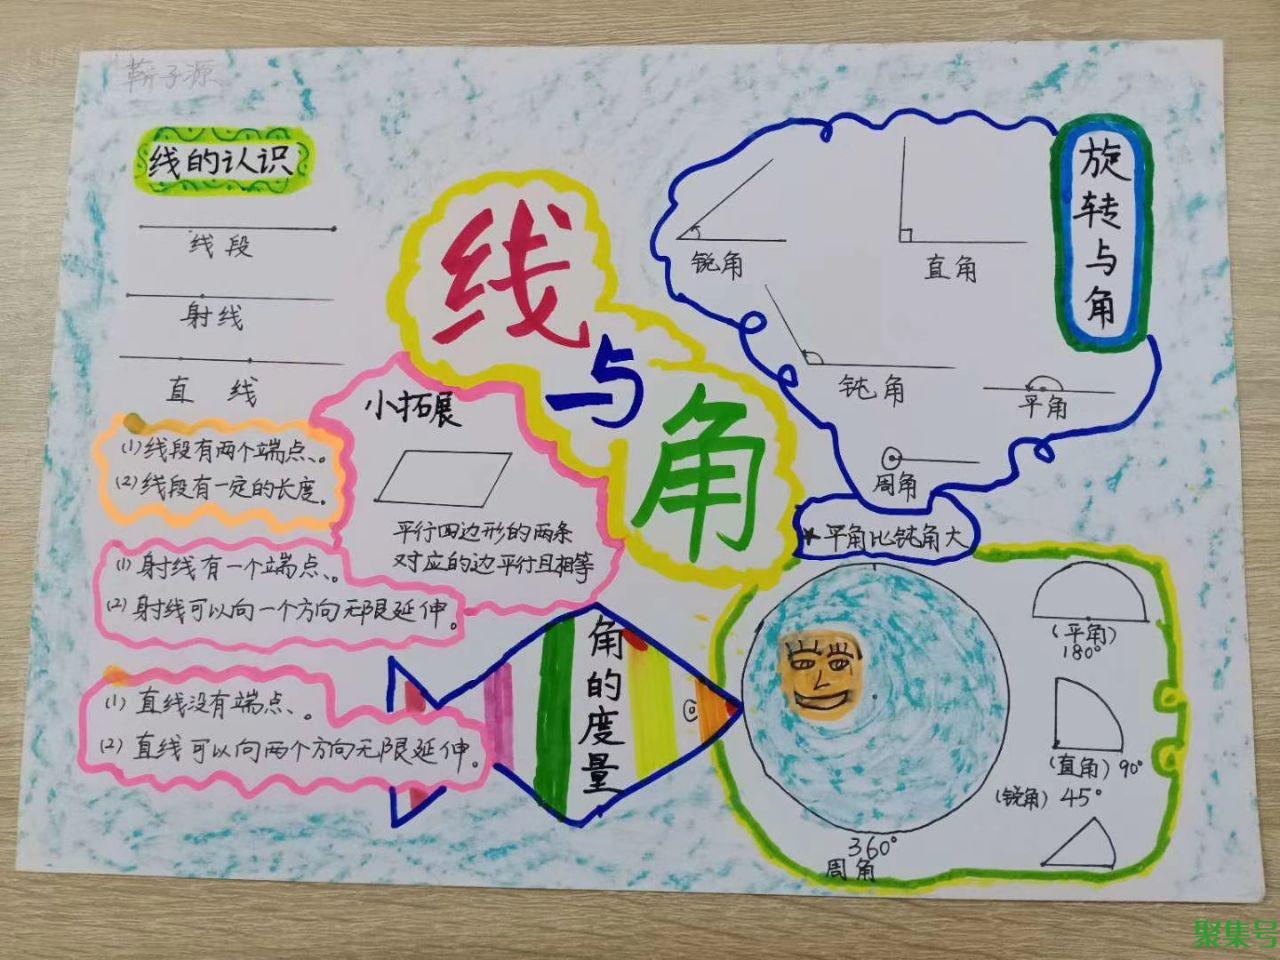 子源
线的认识
线段
射线
直线
(1)线段有两个端点、。
(2)线段有一定的长度。
(1)射线有一个端点、。
(2)射线可以向一个方向无限延伸。
(1)直线没有端点、。
(2)直线可以向两个方向无限延伸。
线
与
角
小拓展
平行四边形的两条
对应的边平行且相等
旋转与角
锐角
直角
钝角
平角
周角
★平角比钝角大
角的度量
360°
周角
(平角)
180°
(直角) 90°
(锐角) 45°
聚集号